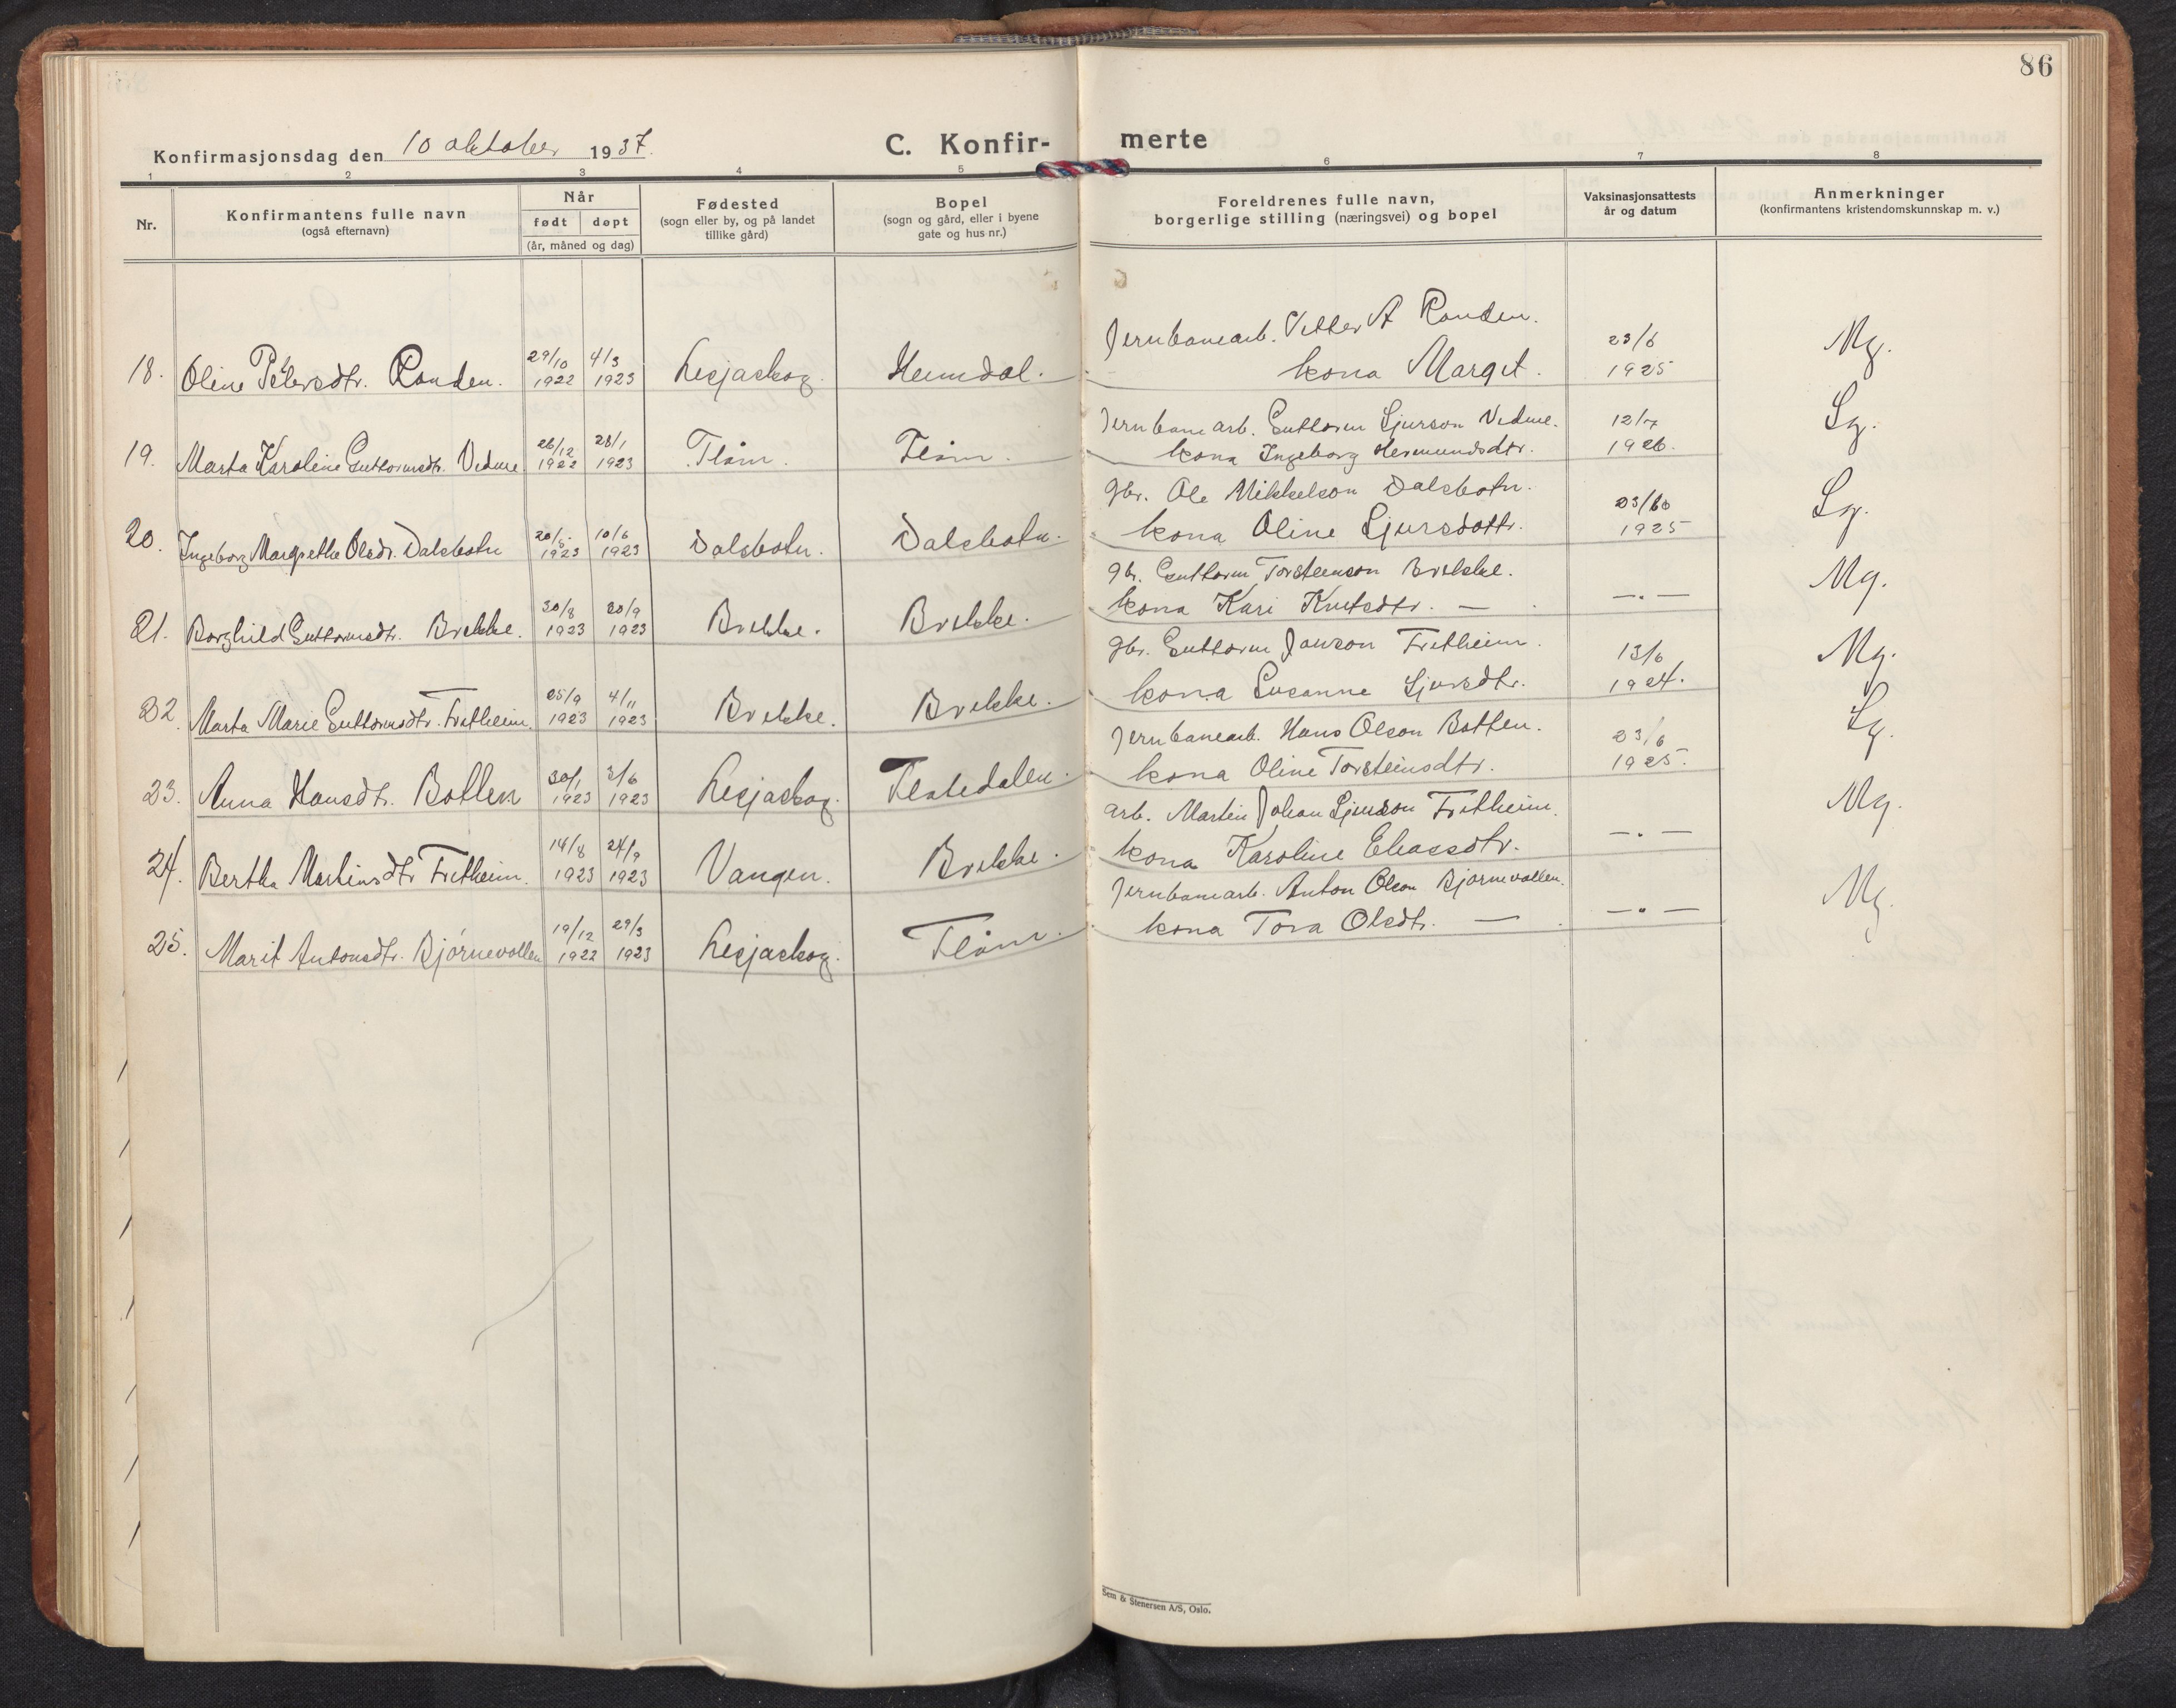 86
Konfirmasjonsdag den 10 oktober 1937.
C. Konfir- merte
1 2 3 4 5 6 7 8
Nr.
Konfirmantens fulle navn
(også efternavn)
Når
født døpt
(år, måned og dag)
Fødested
(sogn eller by, og på landet
tillike gård)
Bopel
(sogn og gård, eller i byene
gate og hus nr.)
Foreldrenes fulle navn,
borgerlige stilling (næringsvei) og bopel
Vaksinasjonsattests
år og datum
Anmerkninger
(konfirmantens kristendomskunnskap m. v.)
Jernbanearb. Petter A Randen.
29/10 4/3 23/6
18. Oline Petersdtr. Randen. 1922 1923 Lesjaskog. Heimdal. kona Margit. 1925 Mg.
Jernbanearb. Guttorm Sjurson Vidme.
26/12 28/1 12/7
19. Marta Karoline Guttormsdtr. Vidme 1922 1923 Flåm. Flåm. kona Ingeborg Hermundsdtr. 1926. Sg.
gbr. Ole Mikkelson Dalsbotn.
20/5 10/6 23/10
20. Ingeborg Margrethe Olsdr. Dalsbotn 1923 1923 Dalsbotn. Dalsbotn. kona Oline Sjursdottr. 1925 Sg.
gbr. Guttorm Torsteinson Brekke.
30/8 30/9
21. Borghild Guttormsdtr. Brekke. 1923 1923 Brekke. Brekke. kona Kari Knutsdtr. — —„— Mg.
gbr. Guttorm Janson Fretheim.
25/9 4/11 13/6
22 Marta Marie Guttormsdtr. Fretheim. 1923 1923 Brekke. Brekke. kona Susanne Sjursdtr. 1924. Mg.
Jernbanearb. Hans Olson Botten.
30/1 3/6 23/6
23. Anna Hansdtr. Botten 1923 1923 Lesjaskog. kona Oline Torsteinsdtr. 1925. Sg.
arb. Martin Johan Sjurson Fretheim.
14/8 24/9
24. Bertha Martinsdtr Fretheim. 1923 1923 Vangen. Brekke. kona Karoline Eliassdtr. —„— Mg.
Jernbanearb. Anton Olson Bjørnevollen.
19/12 29/3
25. Marit Antonsdtr. Bjørnevollen 1922 1923 Lesjaskog. Flåm. kona Tora Olsdtr. — —„— Mg.
Sem & Stenersen A/S, Oslo.